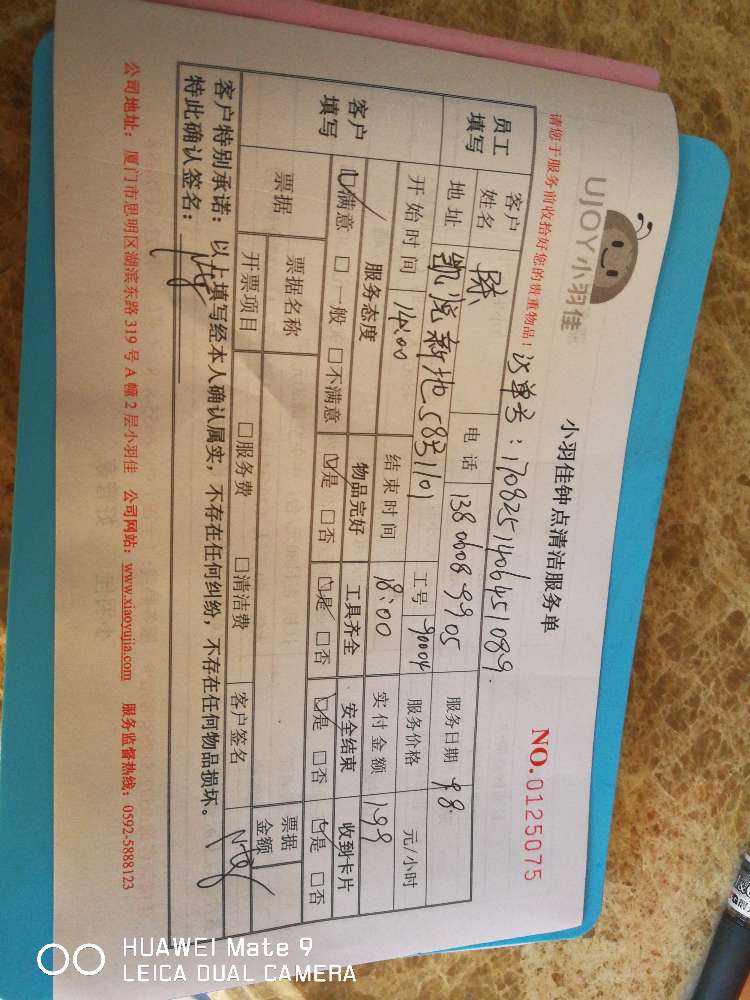 UJOY小羽佳
小羽佳钟点清洁服务单
NO.0125075
请您于服务前收拾好您的贵重物品！ 订单号：170825140645​1089.
员工填写 客户姓名 陈 电话 13800089905 服务日期 9.8.
地址 凯悦新地58栋1101 工号 90004 服务价格 元/小时
开始时间 14:00 结束时间 18:00 实付金额 199
客户填写 服务态度 物品完好 工具齐全 安全结束 收到卡片
☑满意 □一般 □不满意 ☑是 □否 ☑是 □否 ☑是 □否 ☑是 □否
票据 票据名称 票据金额
开票项目 □服务费 □清洁费 客户签名
客户特别承诺：以上填写经本人确认属实，不存在任何纠纷，不存在任何物品损坏。
特此确认签名：
公司地址：厦门市思明区湖滨东路319号A幢2层小羽佳 公司网站：www.xiaoyujia.com 服务监督热线：0592-5888123
HUAWEI Mate 9
LEICA DUAL CAMERA